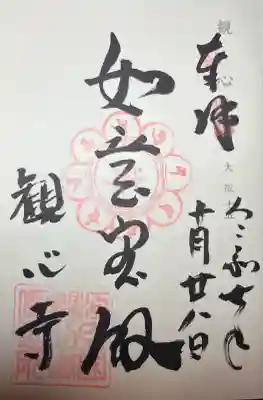 奉拝
令和七年
十月廿八日
如意宝殿
観心寺